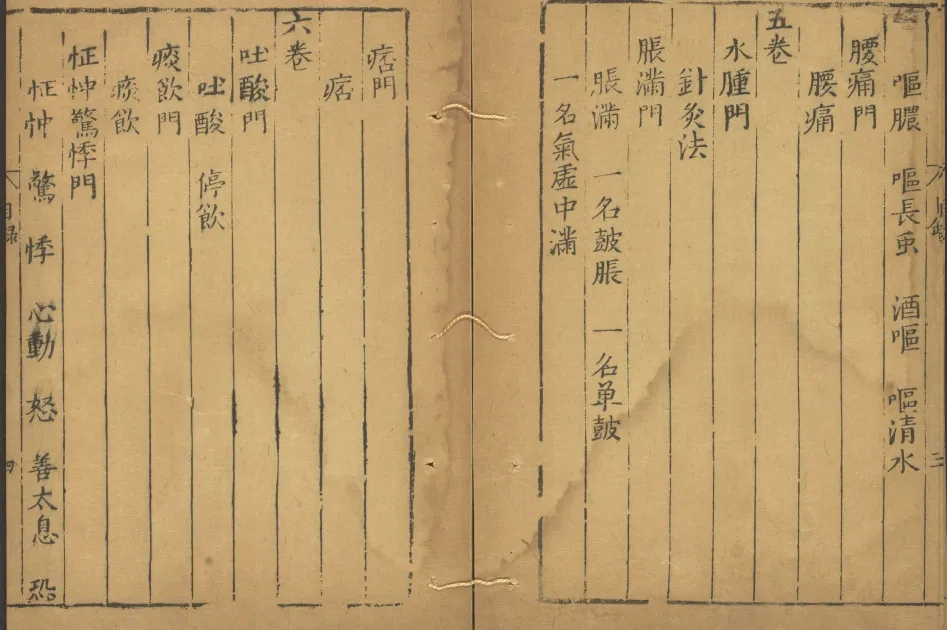 嘔膿 嘔長虫 酒嘔 嘔清水
腰痛門
腰痛
五卷
水腫門
針灸法
脹滿門
脹滿 一名皷脹 一名单皷
一名氣虛中滿
痞門
痞
六卷
吐酸門
吐酸 停飲
痰飲門
痰飲
怔忡驚悸門
怔忡 驚 悸 心動 怒 善太息 恐
目録 四